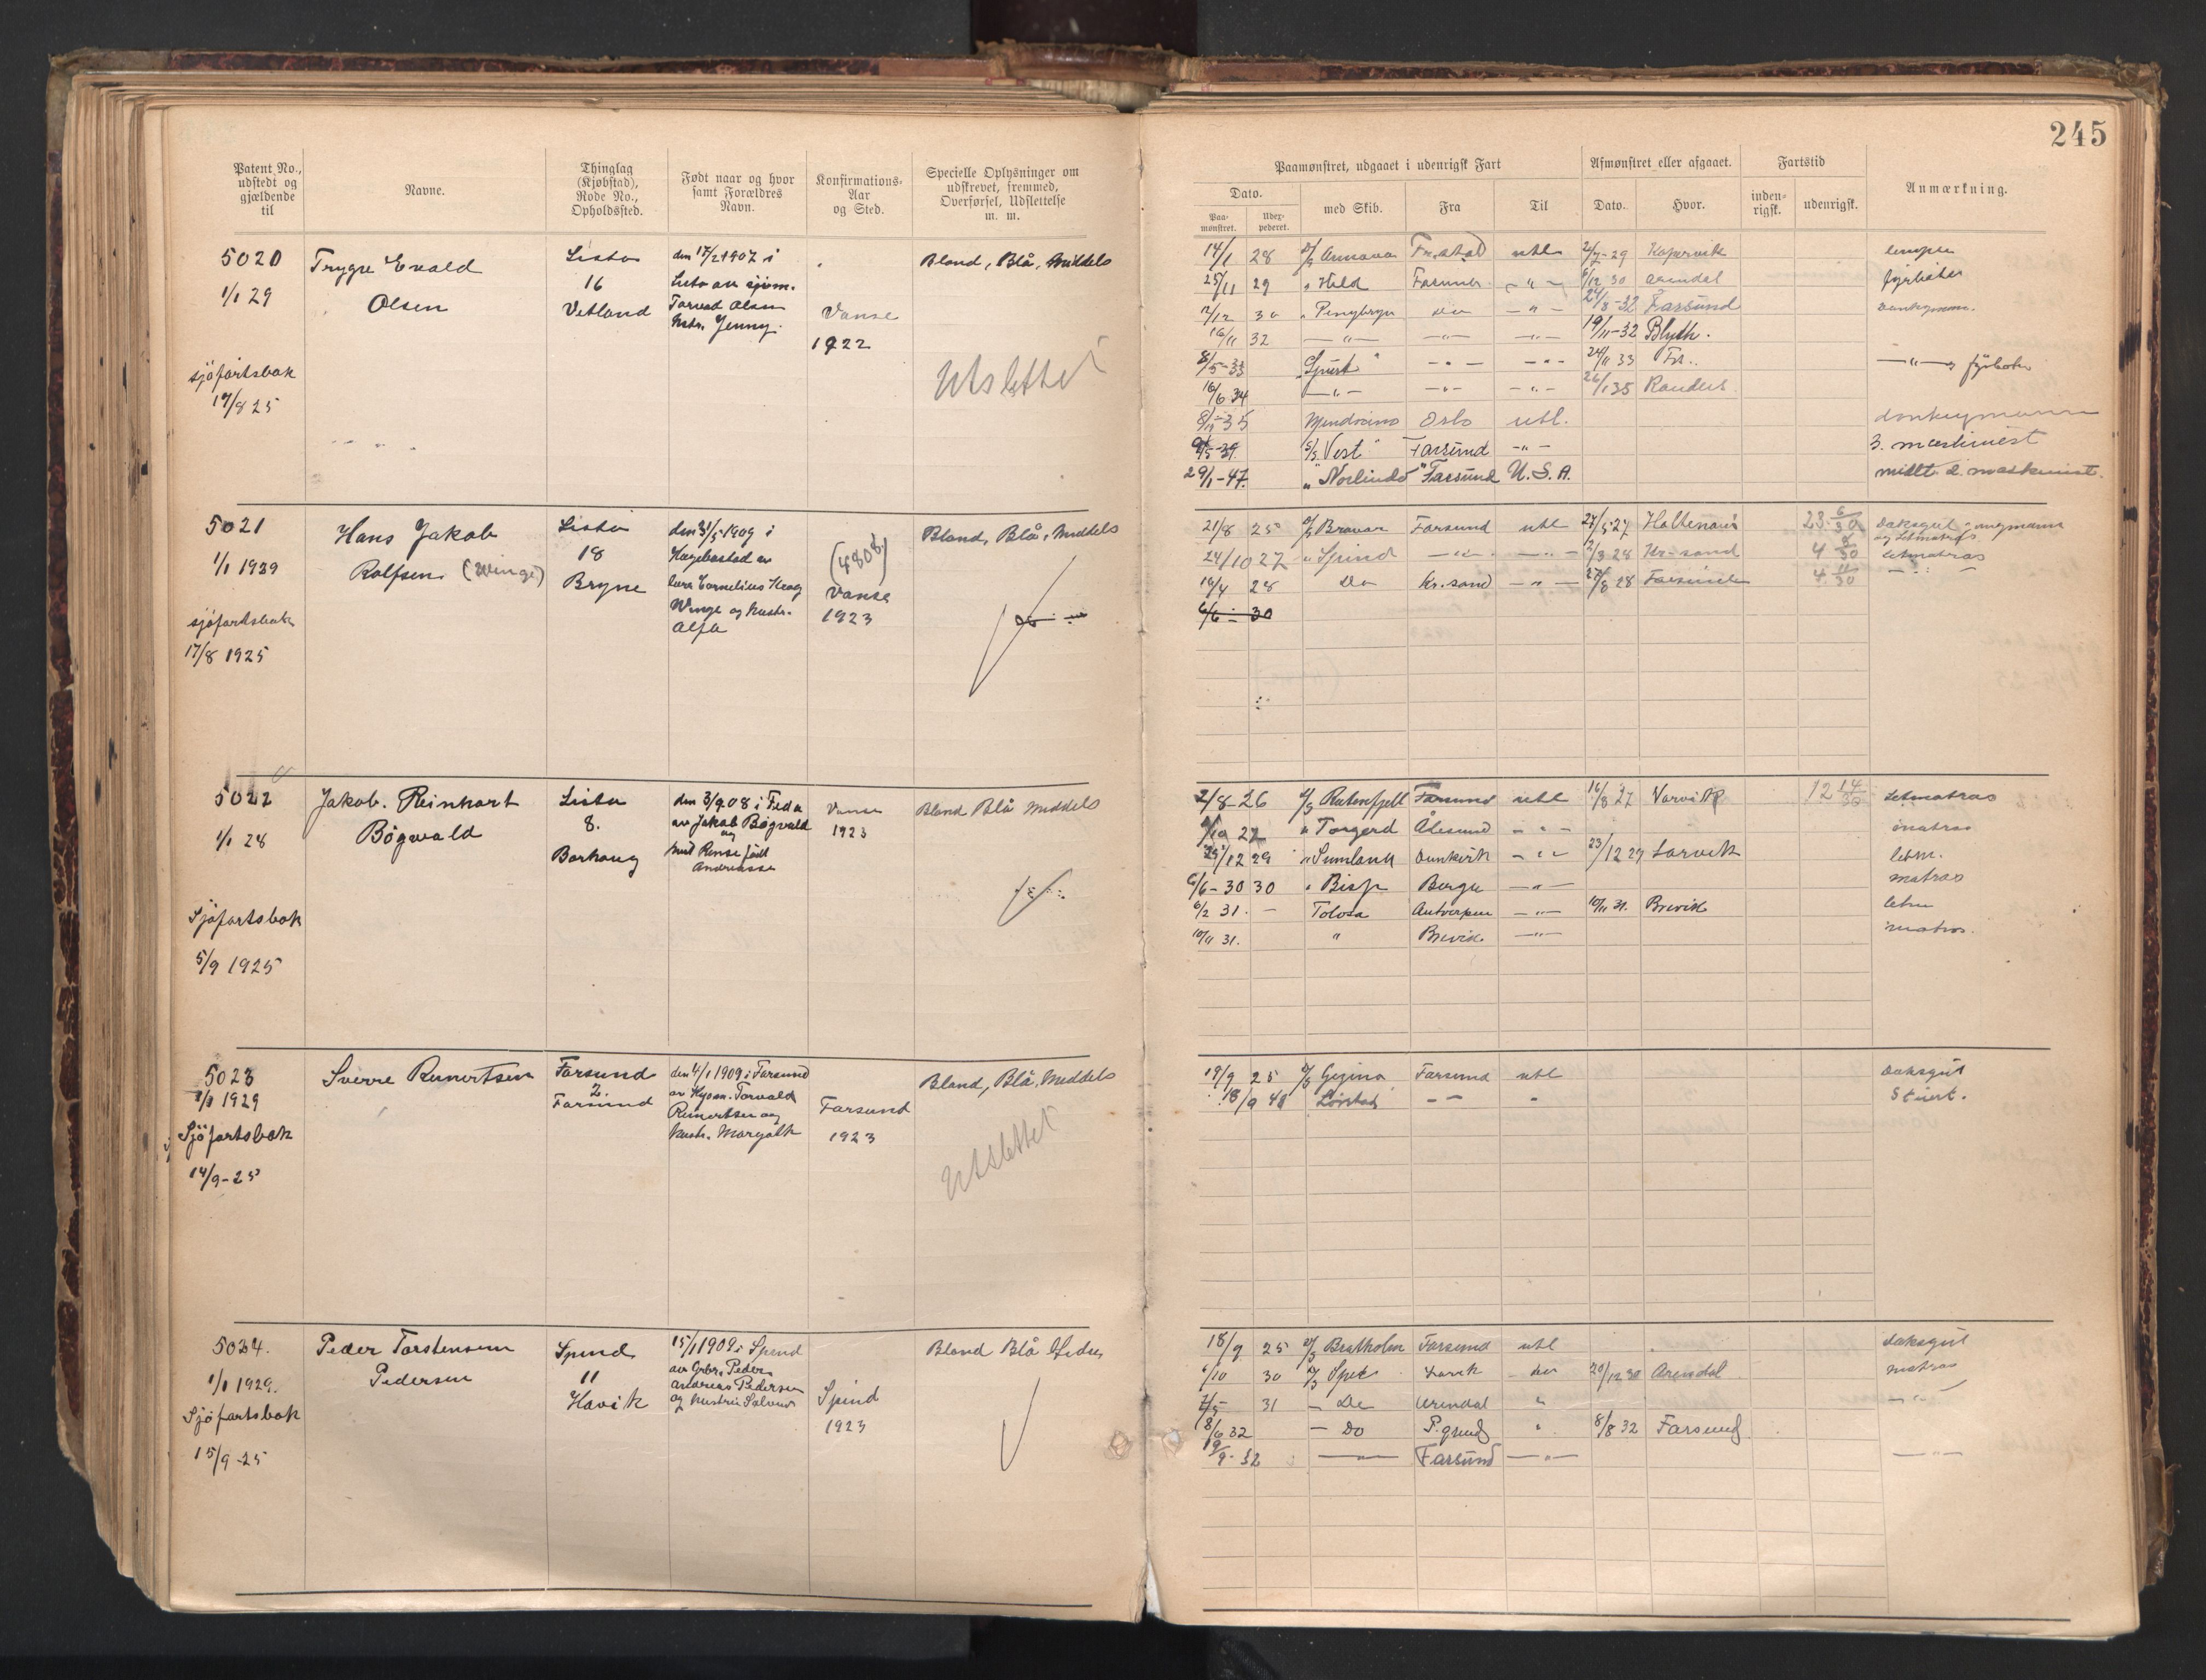 245
Patent No., udstedt og gjældende til
Navne.
Thinglag (Kjøbstad), Rode No., Opholdssted.
Født naar og hvor samt Forældres Navn.
Konfirmations-Aar og Sted.
Specielle Oplysninger om udskrevet, fremmed, Overførsel, Udslettelse m. m.
Paamønstret, udgaaet i udenrigsk Fart
Dato.
Paa-mønstret.
Udex-pederet.
med Skib.
Fra
Til
Afmønstret eller afgaaet.
Dato.
Hvor.
Fartstid
inden-rigsk.
udenrigsk.
Anmærkning.
5020
1/1 29
sjøfartsbok
17/8 25
Trygve Evald
Olsen
Lista
16
Vetland
den 17/2 1907 i
Lista av sjøm.
Torvald Olsen
Hstr. Jenny.
Vanse
1922
Bland, Blå, Middels
Utslettet
14/1 28 Fr.stad utl 29 Kopervik lemper
25/11 29 " Held Farsund - " - 6/12 30 Arendal fyrbøter
7/12 30 do - " - 24/8-32 Farsund donkeymann.
16/11 32 - " - - " - - " - 19/11-32 Blyth.
8/5-33 "Spurt" - " - - " - 24/11 33 Fr.. - " - fyrbøter
16/6 34 - " - - " - - " - 26/1 35 Randers.
8/11-35 Mendocino Oslo utl. donkeymann
39. S/S "Vest" Farsund - " - 3. maskinist
29/1-47. " "Norlindo" Farsund U.S.A. midlt. 2. maskinist.
5021
1/1 1929
sjøfartsbok
17/8 1925
Hans Jakob
Rolfsen (Winge)
Lista
18
Bryne
den 31/5 1909 i
Hægebostad av
lærer Cornelius Haag
Winge og hustr.
Alfa
(4808)
Vanse
1923
Bland, Blå, Middels
do
21/8 25 Bravar Farsund utl 24/5 27 Holtenau 23 6/30 Dæksgut - ungmann og Letmatros
24/10 27 " Spind - " - - " - 2/3 28 Kr-sand 4 8/30 letmatros
16/4 28 Do Kr.sand - " - 27/8 28 Farsund 4 11/30 - " -
6/6 - 30
5022
1/1 28
Sjøfartsbok
5/9 1925
Jakob. Reinhart
Bøgvald
Lista
8.
Borhaug
den 3/9 08 i Feda
av Jakob Bøgvald
og
hust Rense født
Andreasse
Vanse
1923
Bland Blå Middels
2/8 26 Rutenfjell Farsund utl 16/8 27 Narvik 12 14/30 Letmatros
27 " Torgerd Ålesund - " - matros
12 29 " Sumland Dunkirk - " - 23/12 29 Larvik letm.
6/6-30 30 " Bisp Bergen - " - matros
6/2 31. - Tolosa Antverpen - " - 10/11 31. Brevik letm
10/11 31. " Brevik. - " - matros.
5023
1/1 1929
Sjøfartsbok
14/9-25
Sverre Reinertsen
Farsund
2.
Farsund
den 4/1 1909 i Farsund
av Torvald
Reinertsen og
hustr. Margith
Farsund
1923
Bland, Blå, Middels
Utslettet
19/9 25 Gezina Farsund utl Dæksgut
18/9 48 Lørstad - " - " Stuert.
5024.
1/1 1929.
Sjøfartsbok
15/9-25
Peder Torstensen
Pedersen
Spind
11
Havik
15/1 1909 i Spind
av Grbr. Peder
Andreas Pedersen
og hustru
Spind
1923
Bland Blå
18/9 25 Bratholm Farsund utl Dæksgut
1/10 30 Spes Larvik do 29/12 30 Arendal matros
7/5 31 - Do Arendal " - " -
8/6 32 - Do P.grund " 8/8 32 Farsund
19/9-32 - " - Farsund - " - - " -